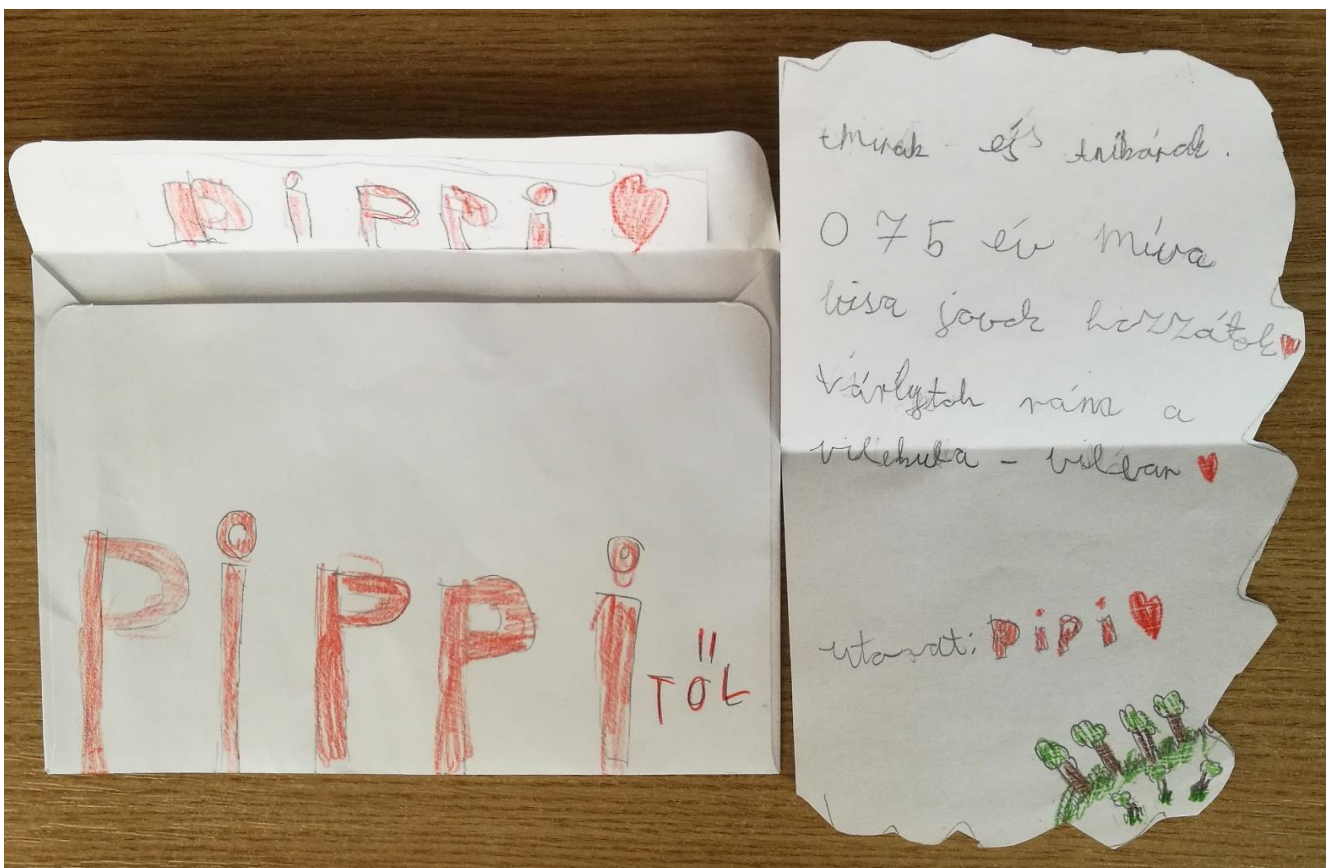 PiPPi
PiPPi
TŐL
tminak és anikának.
0 75 év míva
visa jövök hozzátok
várlytok rám a
vilekula - vilában
utazott: PiPi